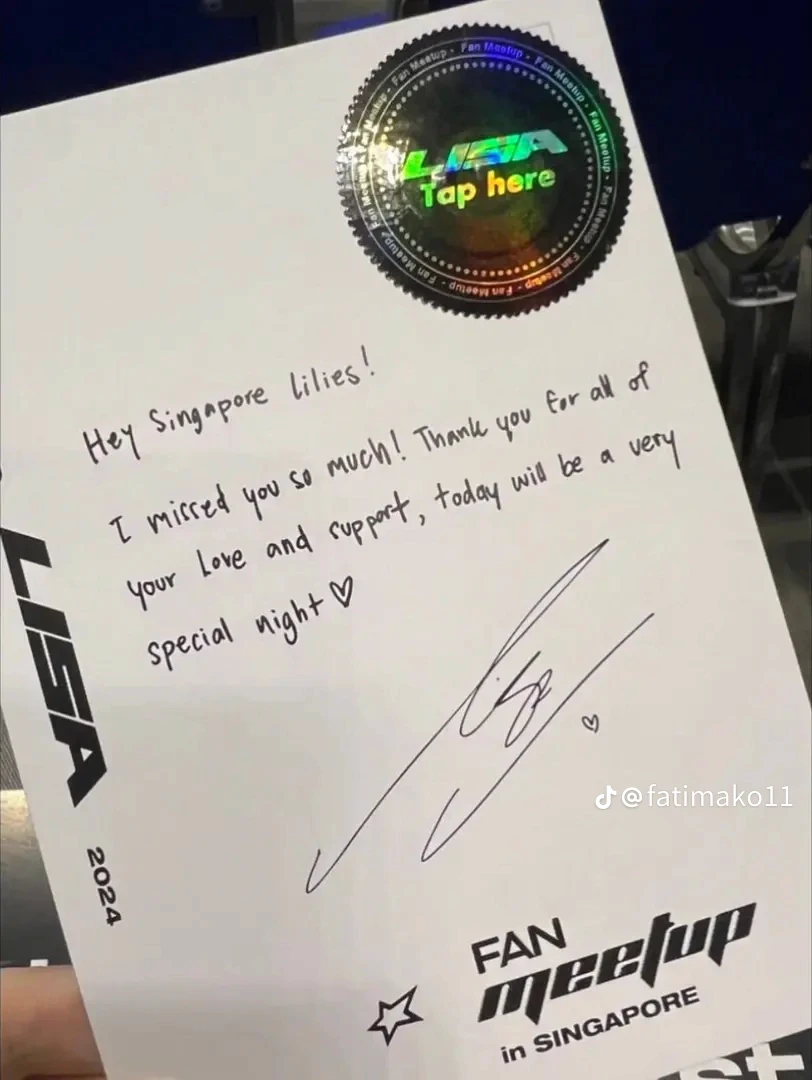 Fan Meetup · Fan Meetup · Fan Meetup · Fan Meetup · Fan Meetup · Fan Meetup · Fan Meetup · Fan Meetup
LISA
Tap here
Hey Singapore lilies!
I missed you so much! Thank you for all of
your love and support, today will be a very
special night♡
Lisa ♡
LISA
2024
@fatimako11
FAN
meetup
in SINGAPORE